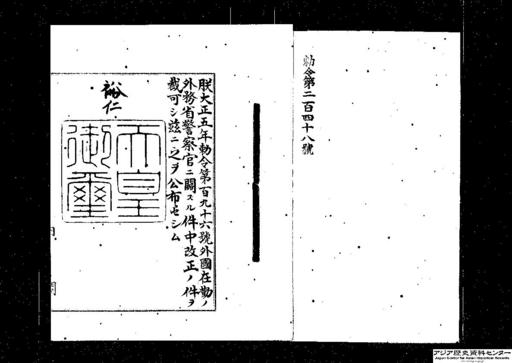 勅令第二百四十八號
朕大正五年勅令第百九十六號外國在勤ノ
外務省警察官ニ關スル件中改正ノ件ヲ
裁可シ茲ニ之ヲ公布セシム
裕仁
天皇
御璽
アジア歴史資料センター
Japan Center for Asian Historical Records